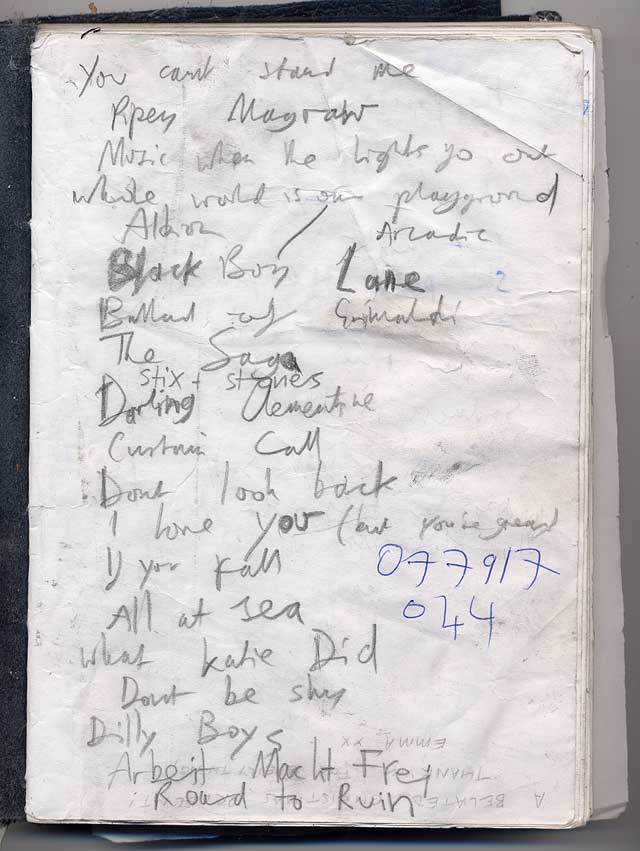 You cant stand me
Rpey Magraw
Music when the lights go out
whole world is our playground
Albion / Arcadie
Black Boy Lane
2
Ballad of Grimaldi
The Saga
stix + stones
Darling Clementine
Curtain Call
Dont look back
I love you (but you're green)
If you Fall
077917
All at sea
044
what Katie Did
Dont be shy
Dilly Boys
EMMA XX
Arbeit Macht Frei
THANK
Road to Ruin
A BELATED